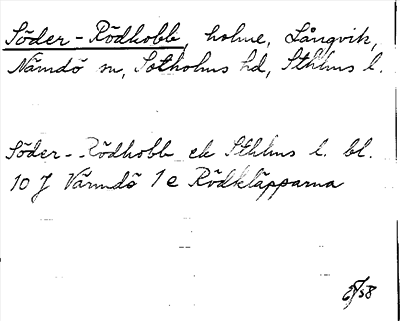 Söder-Rödkobb, holme, Långvik,
Nämdö sn, Sotholms hd, Sthlms l.
Söder-Rödkobb ek Sthlms l. bl.
10 J Värmdö 1e Rödkläpparna
/58